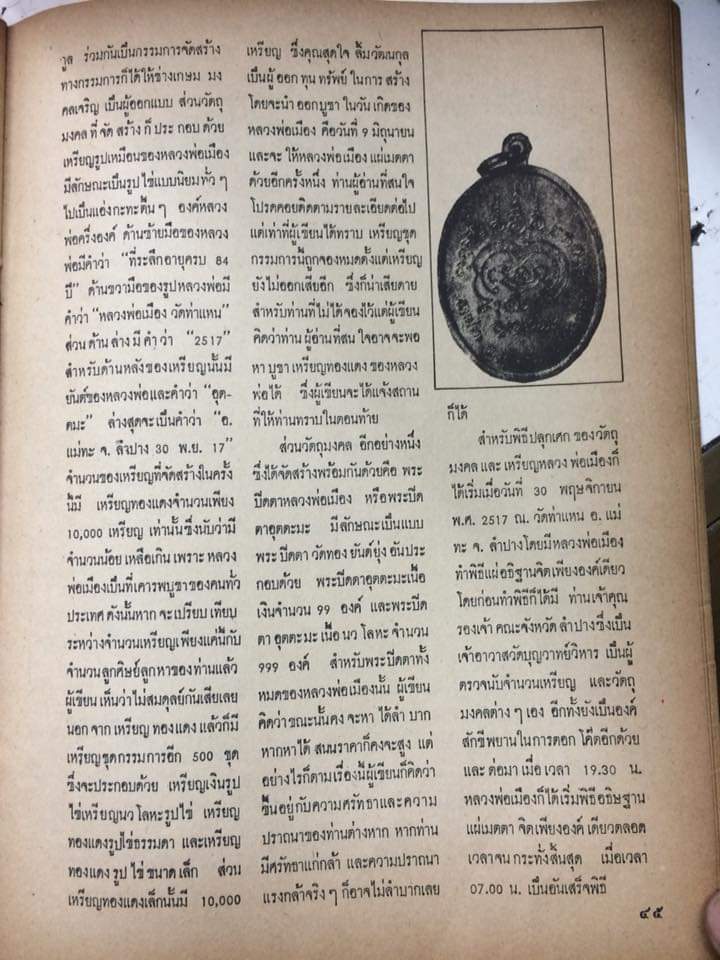 กูล ร่วมกันเป็นกรรมการจัดสร้าง
ทางกรรมการก็ได้ให้ช่างเกษม มง
คลเจริญ เป็นผู้ออกแบบ ส่วนวัตถุ
มงคล ที่ จัด สร้าง ก็ ประ กอบ ด้วย
เหรียญรูปเหมือนของหลวงพ่อเมือง
มีลักษณะเป็นรูป ไข่แบบนิยมทั่ว ๆ
ไปเป็นแอ่งกะทะตื้น ๆ องค์หลวง
พ่อครึ่งองค์ ด้านซ้ายมือของหลวง
พ่อมีคำว่า “ที่ระลึกอายุครบ 84
ปี” ด้านขวามือของรูปหลวงพ่อมี
คำว่า “หลวงพ่อเมือง วัดท่าแหน”
ส่วน ด้าน ล่าง มี คำ ว่า “2517”
สำหรับด้านหลังของเหรียญนั้นมี
ยันต์ของหลวงพ่อและคำว่า “อุต-
ตมะ” ล่างสุดจะเป็นคำว่า “อ.
แม่ทะ จ. ลำปาง 30 พ.ย. 17”
จำนวนของเหรียญที่จัดสร้างในครั้ง
นี้มี เหรียญทองแดงจำนวนเพียง
10,000 เหรียญ เท่านั้นซึ่งนับว่ามี
จำนวนน้อย เหลือเกิน เพราะ หลวง
พ่อเมืองเป็นที่เคารพบูชาของคนทั่ว
ประเทศ ดังนั้นหาก จะเปรียบ เทียบ
ระหว่างจำนวนเหรียญเพียงแค่นี้กับ
จำนวนลูกศิษย์ลูกหาของท่านแล้ว
ผู้เขียน เห็นว่าไม่สมดุลย์กันเสียเลย
นอก จาก เหรียญ ทองแดง แล้วก็มี
เหรียญชุดกรรมการอีก 500 ชุด
ซึ่งจะประกอบด้วย เหรียญเงินรูป
ไข่เหรียญนว โลหะรูปไข่ เหรียญ
ทองแดงรูปไข่ธรรมดา และเหรียญ
ทองแดง รูป ไข่ ขนาด เล็ก ส่วน
เหรียญทองแดงเล็กนั้นมี 10,000
เหรียญ ซึ่งคุณสุดใจ ลิ้มวัฒนกุล
เป็นผู้ ออก ทุน ทรัพย์ ในการ สร้าง
โดยจะนำ ออกบูชา ในวัน เกิดของ
หลวงพ่อเมือง คือวันที่ 9 มิถุนายน
และจะ ให้หลวงพ่อเมือง แผ่เมตตา
ด้วยอีกครั้งหนึ่ง ท่านผู้อ่านที่สนใจ
โปรดคอยติดตามรายละเอียดต่อไป
แต่เท่าที่ผู้เขียนได้ทราบ เหรียญชุด
กรรมการนี้ถูกจองหมดตั้งแต่เหรียญ
ยังไม่ออกเสียอีก ซึ่งก็น่าเสียดาย
สำหรับท่านที่ไม่ได้จองไว้แต่ผู้เขียน
คิดว่าท่าน ผู้อ่าน ที่สน ใจอาจจะพอ
หา บูชา เหรียญทองแดง ของหลวง
พ่อได้ ซึ่งผู้เขียนจะได้แจ้งสถาน
ที่ให้ท่านทราบในตอนท้าย
ส่วนวัตถุมงคล อีกอย่างหนึ่ง
ซึ่งได้จัดสร้างพร้อมกันด้วยคือ พระ
ปิดตาหลวงพ่อเมือง หรือพระปิด
ตาอุตตะมะ มีลักษณะเป็นแบบ
พระ ปิดตา วัดทอง ยันต์ยุ่ง อันประ
กอบด้วย พระปิดตาอุตตะมะเนื้อ
เงินจำนวน 99 องค์ และพระปิด
ตา อุตตะมะ เนื้อ นว โลหะ จำนวน
999 องค์ สำหรับพระปิดตาทั้ง
หมดของหลวงพ่อเมืองนั้น ผู้เขียน
คิดว่าขณะนั้นคง จะหา ได้ลำ บาก
หากหาได้ สนนราคาก็คงจะสูง แต่
อย่างไรก็ตามเรื่องนี้ผู้เขียนก็คิดว่า
ขึ้นอยู่กับความศรัทธาและความ
ปราถนาของท่านต่างหาก หากท่าน
มีศรัทธาแก่กล้า และความปราถนา
แรงกล้าจริง ๆ ก็อาจไม่ลำบากเลย
ก็ได้
สำหรับพิธี ปลุกเศก ของวัตถุ
มงคล และ เหรียญหลวง พ่อเมืองก็
ได้เริ่มเมื่อวันที่ 30 พฤษจิกายน
พ.ศ. 2517 ณ. วัดท่าแหน อ. แม่
ทะ จ. ลำปางโดยมีหลวงพ่อเมือง
ทำพิธีแผ่อธิฐานจิตเพียงองค์เดียว
โดยก่อนทำพิธีก็ได้มี ท่านเจ้าคุณ
รองเจ้า คณะจังหวัด ลำปางซึ่งเป็น
เจ้าอาวาสวัดบุญวาทย์วิหาร เป็นผู้
ตรวจนับจำนวนเหรียญ และวัตถุ
มงคลต่าง ๆ เอง อีกทั้งยังเป็นองค์
สักขีพยานในการตอก โค๊ตอีกด้วย
และ ต่อมา เมื่อ เวลา 19.30 น.
หลวงพ่อเมืองก็ได้เริ่มพิธีอธิษฐาน
แผ่เมตตา จิตเพียงองค์ เดียวตลอด
เวลาจน กระทั่งสิ้นสุด เมื่อเวลา
07.00 น. เป็นอันเสร็จพิธี
๔๕